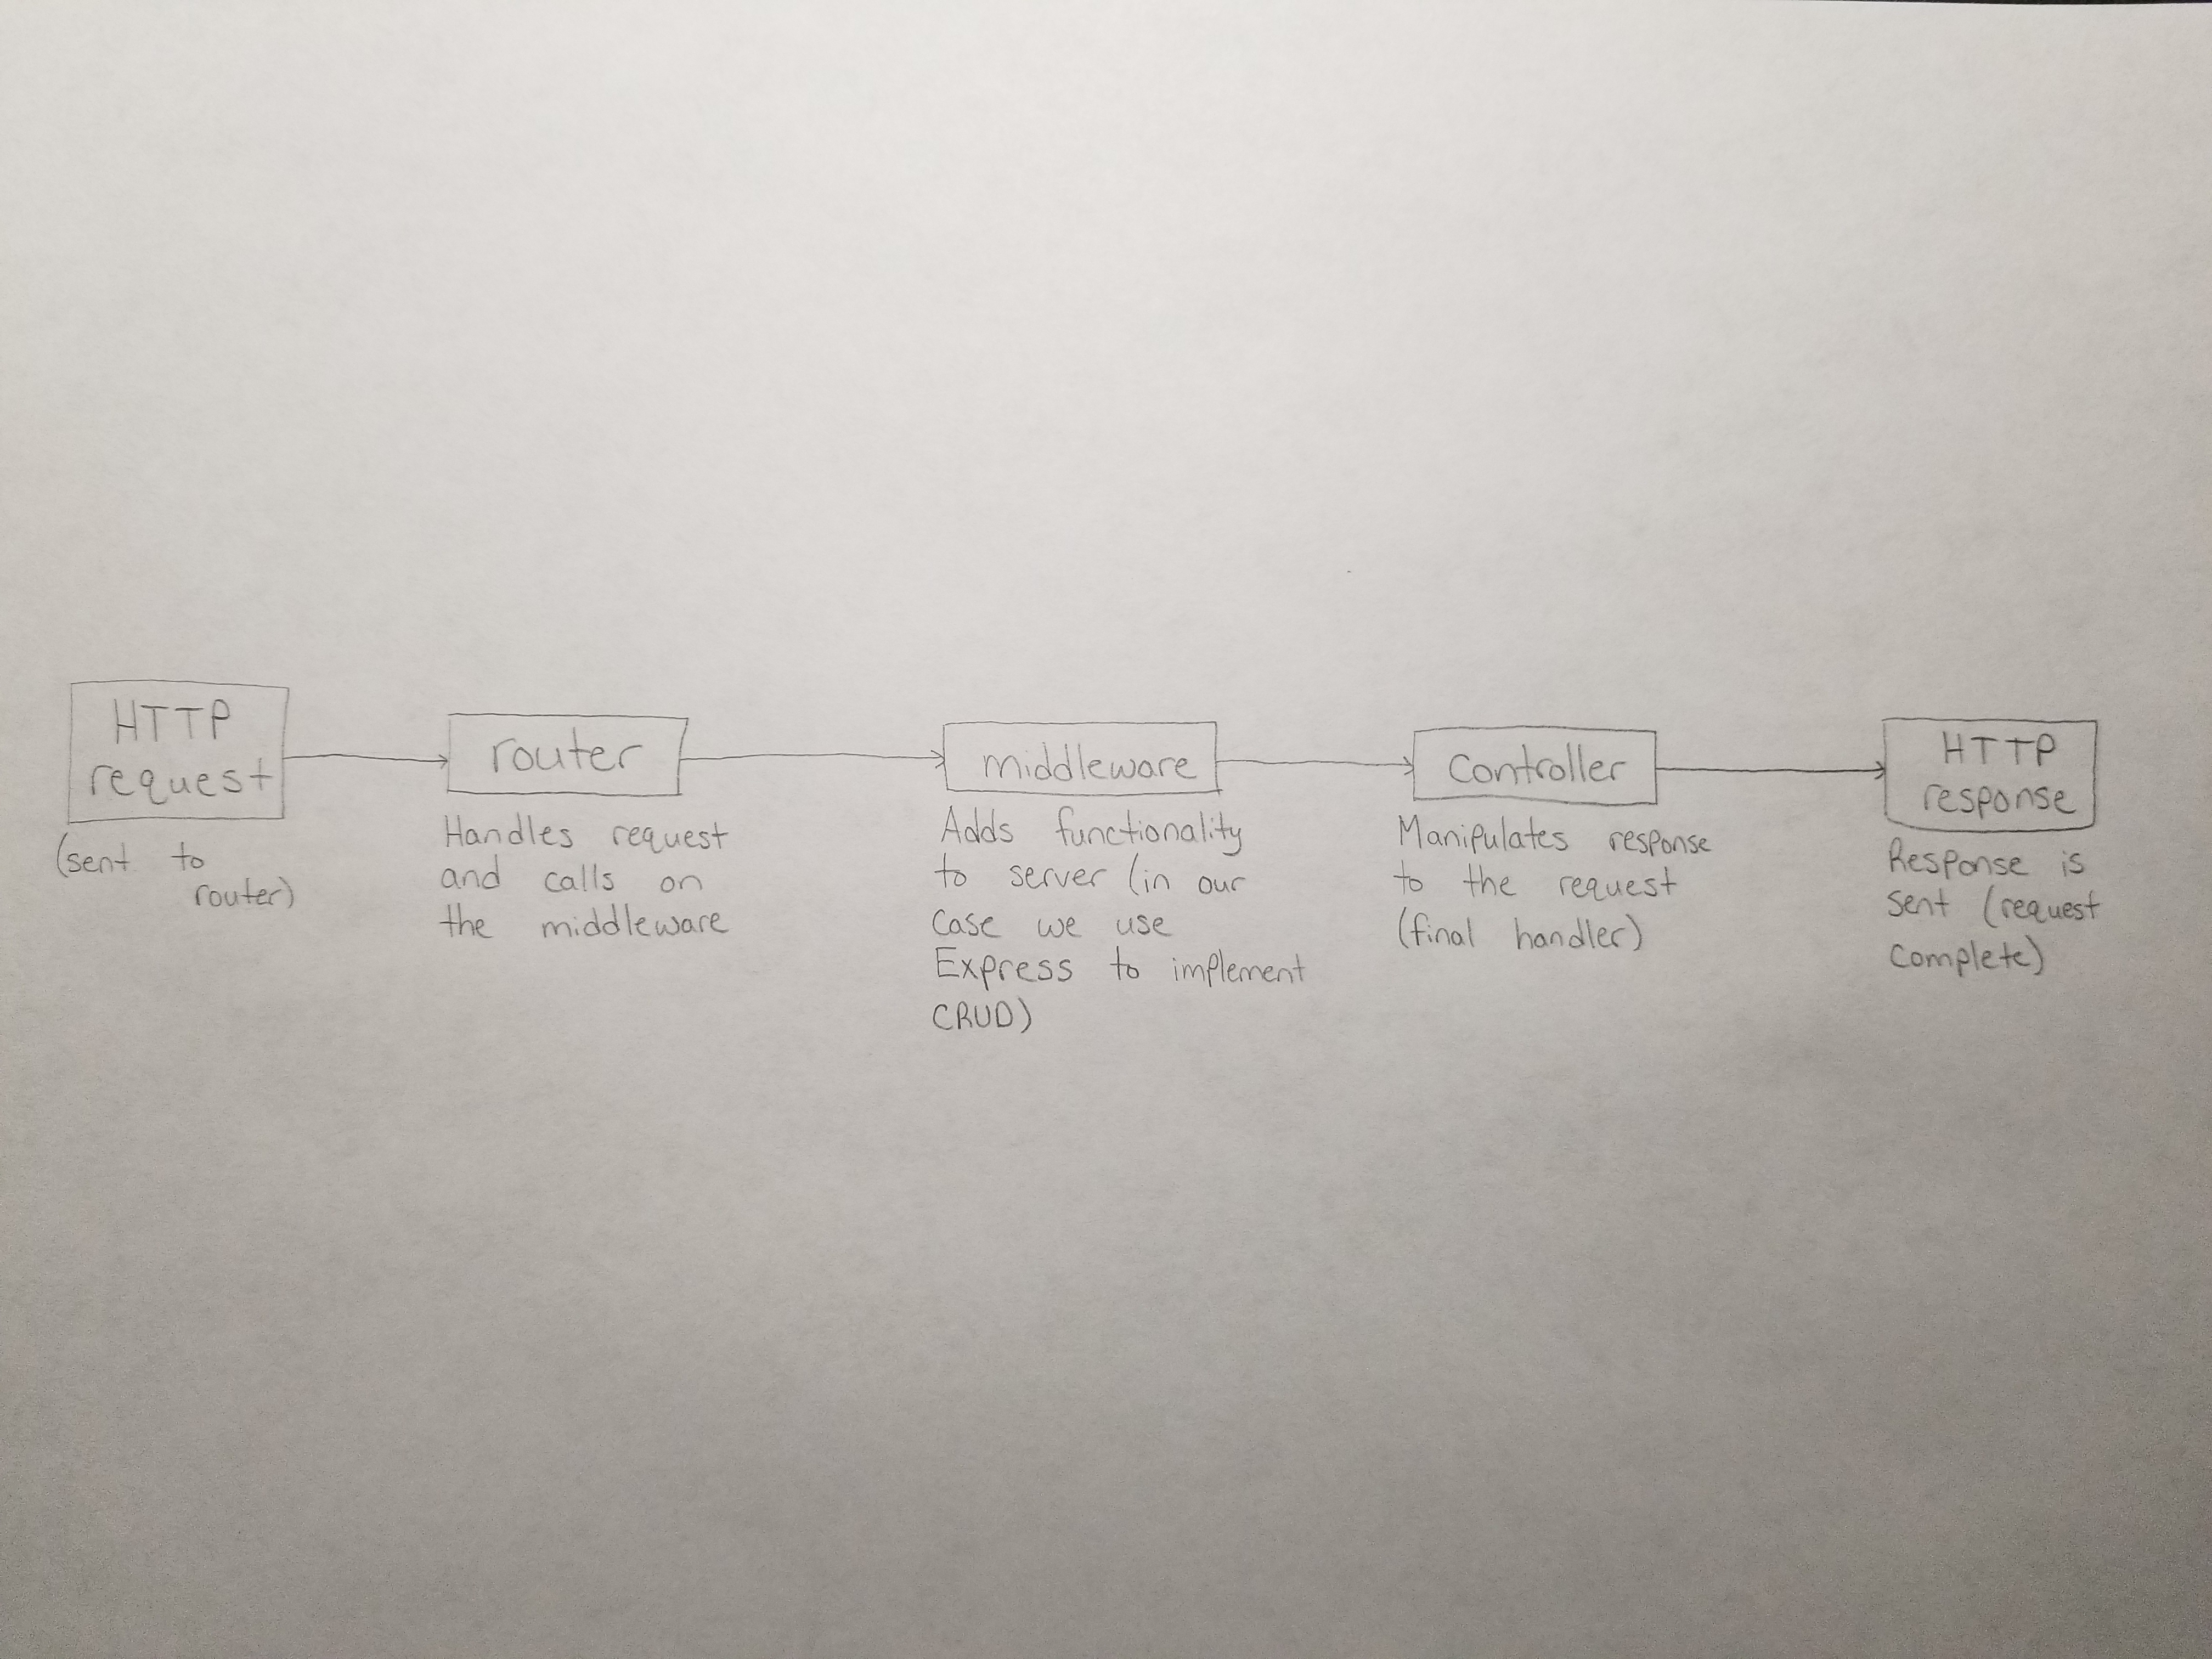 HTTP
request
(sent to
router)
router
Handles request
and calls on
the middleware
middleware
Adds functionality
to server (in our
case we use
Express to implement
CRUD)
Controller
Manipulates response
to the request
(final handler)
HTTP
response
Response is
sent (request
complete)